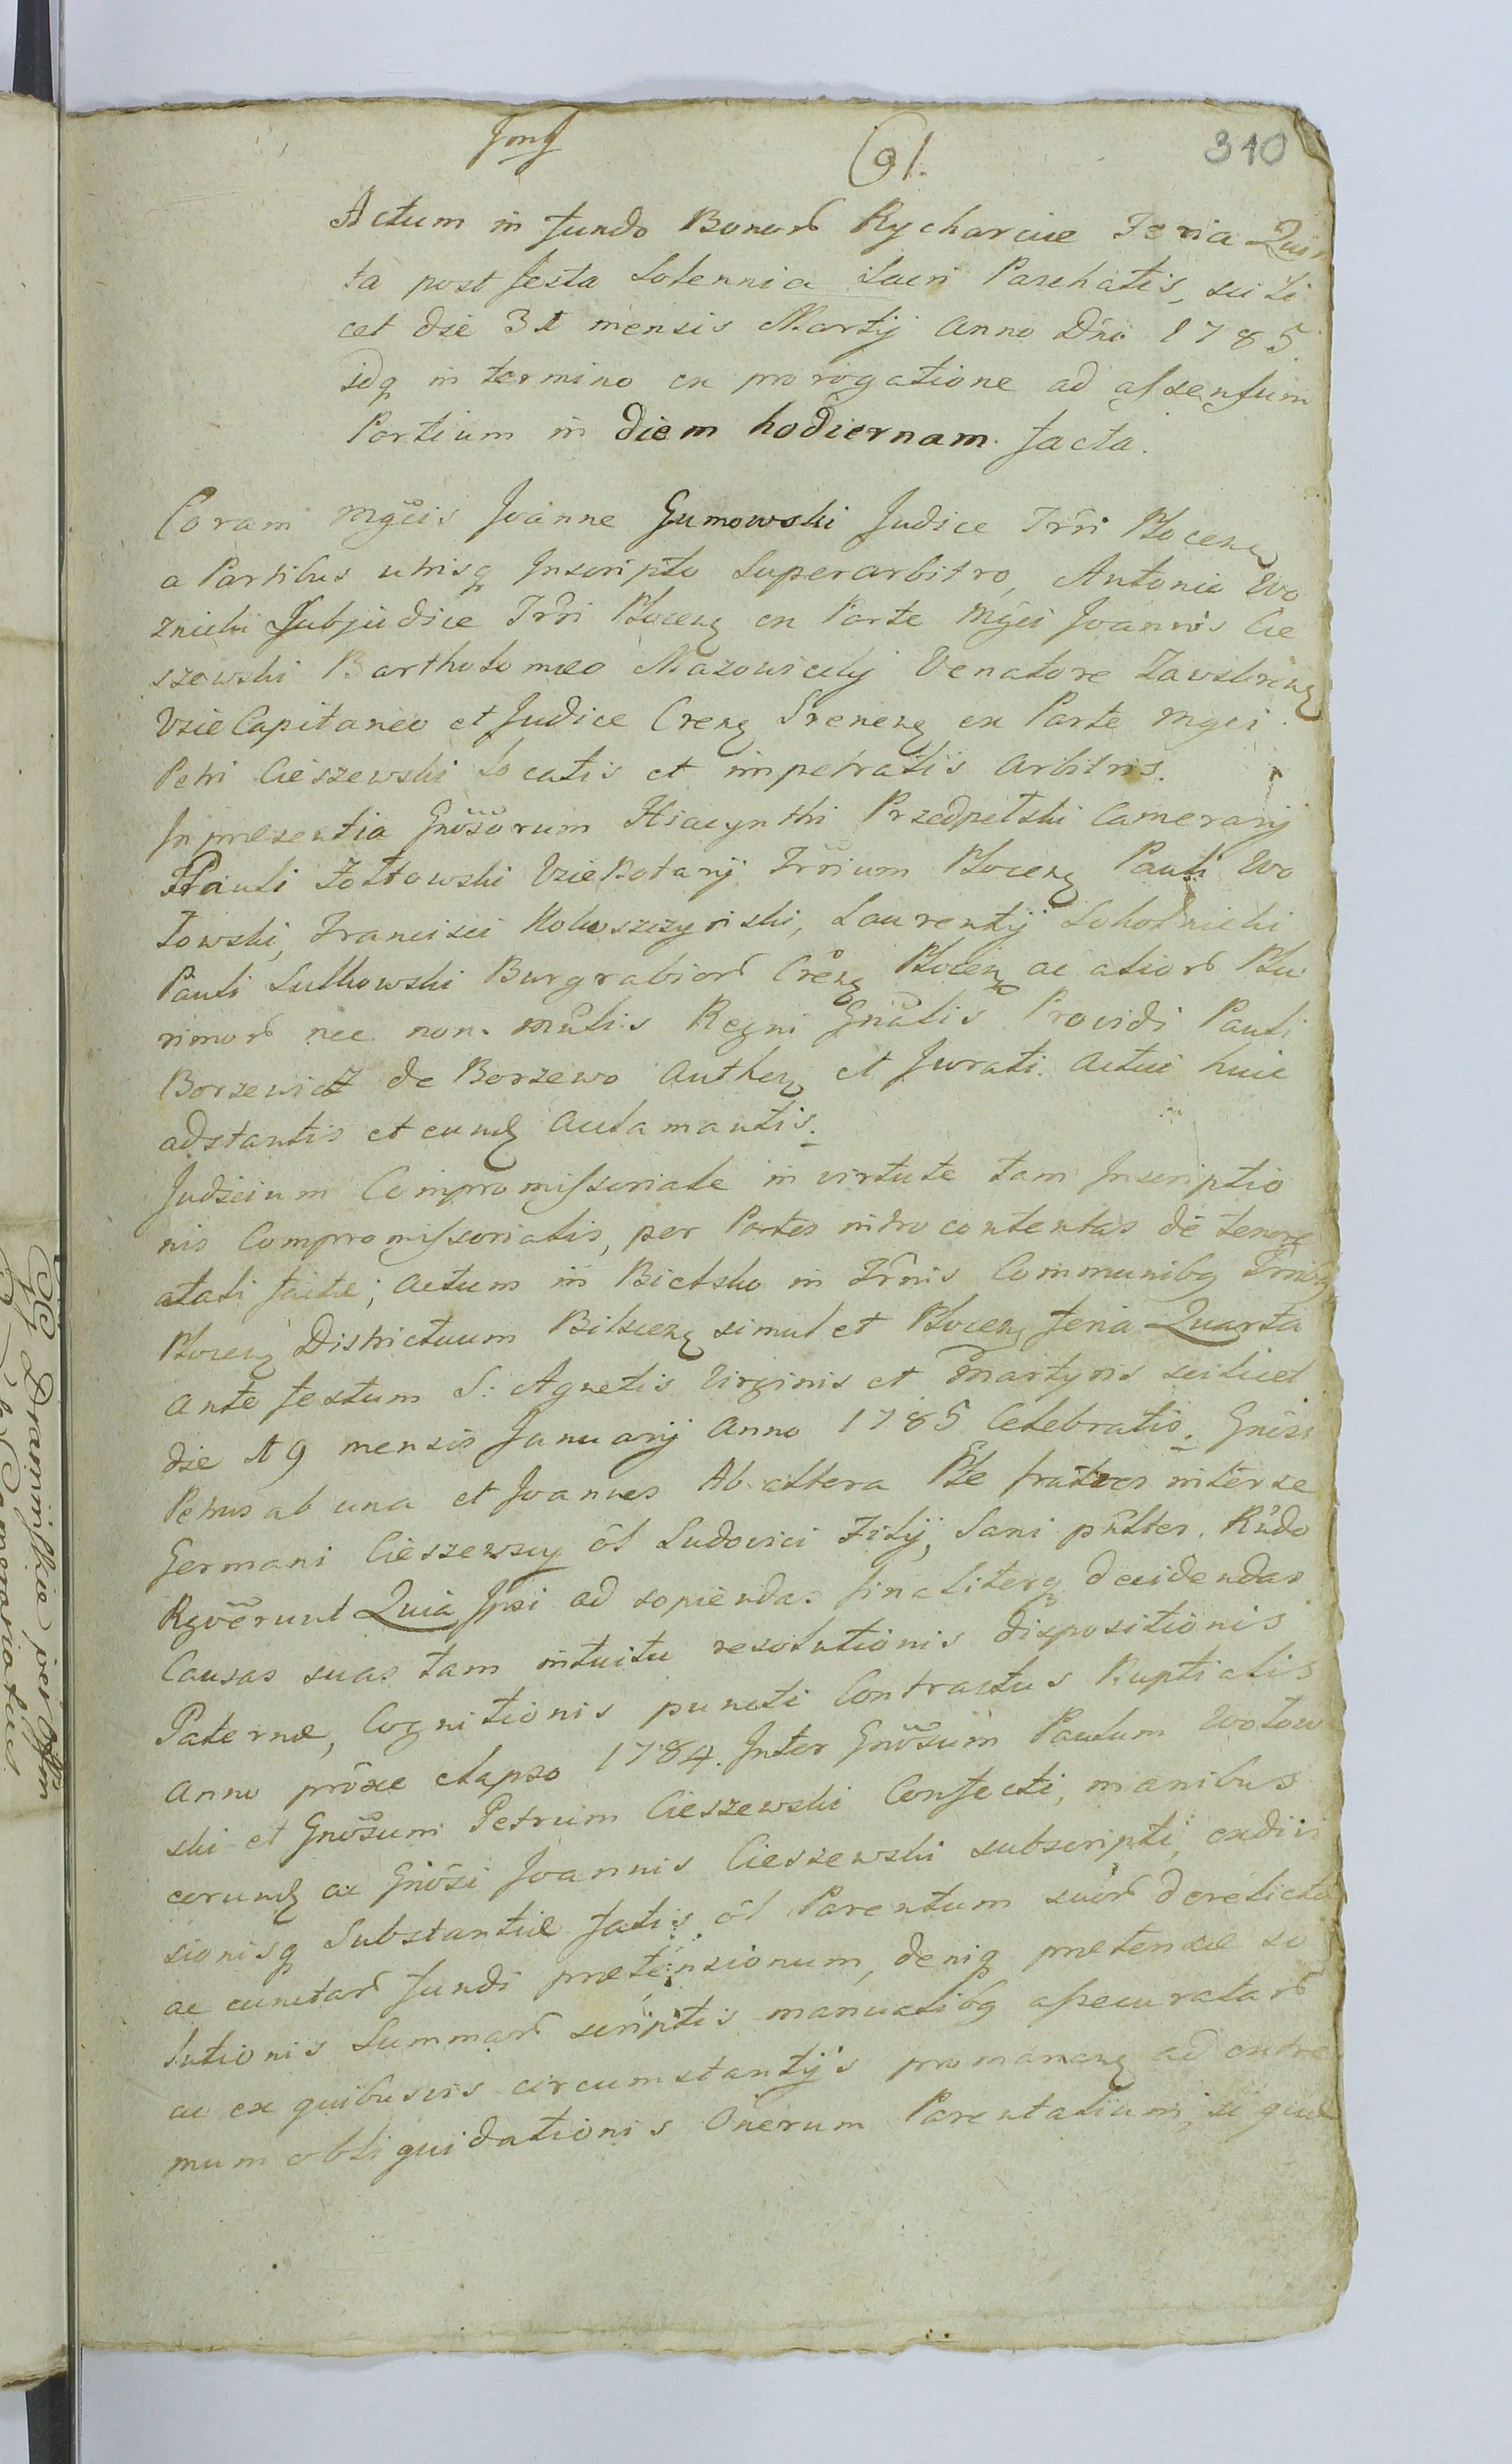 91.
310
Actum in fundo Bonor Rycharcice Feria Quin
ta post festa Solennia Sacri Paschatis, scili
cet die 31 mensis Martij Anno Dni 1785.
idq in termino ex prorogatione ad assensum
Partium in diem hodiernam facta.
Coram Mgcis Joanne Gumowski Judice Trri Plocens
a Partibus utrisq Inscripto Superarbitro, Antonio Wo
znicki Subjudice Trri Plocens ex Parte Mgci Joannis Cie
szewski Bartholomeo Mazowiecky Venatore Zawskrens
Vice Capitaneo et Judice Crens Srenens ex Parte Mgci
Petri Cieszewski locatis et impetratis Arbitris.
In presentia Gnosorum Hiacynthi Przedpelski Camerarij
Pauli Zołtowski ViceNotarij Trrium Plocens Pauli Wo
łowski, Francisci Kolwszczyński, Laurentij Sokolnicki
Pauli Sulkowski Burgrabior Crens Plocens ac alior Plu
rimor nec non Mnlis Regni Gnalis Providi Pauli
Borzewicz de Borzewo Authen et Jurati Actui huic
adstantis et eund aclamantis.
Judicium Compromissoriale in virtute tam Inscriptio
nis Compromissorialis, per Partes introcontentas de tenore
atali facte; Actum in Bielsko in Trnis Communibq Trribq
Plocens Districtuum Bilscens simul et Plocens feria Quarta
ante festum S: Agnetis Virginis et Martyris scilicet
die 19 mensis Januarij Anno 1785 Celebratis. Gnosi
Petrus ab una et Joannes Ab altera Pte fratres inter se
Germani Cieszewscy ol Ludovici Filij, Sani pnlter. Rndo
Rgverunt Quia Ipsi ad sopiendas finaliterq decidendas
Causas suas tam intuitu resolutionis dispositionis
Paternæ, Cognitionis puncti Contractus Nuptialis
Anno proxe elapso 1784. Inter Gnosum Paulum Wołow
ski et Gnosum Petrum Cieszewski Confecti, manibus
eorund ac Gnosi Joannis Cieszewski subscripti, exdivi
sionisq Substantiæ fatis ol Parentum suor derelictæ
ac cunctar fundi prætensionum, deniq pretensæ so
lutionis Summar scriptis manualibq assecuratar
ac ex quibusvis circumstantijs promanans ad extre
mum obliquidationis Onerum Parentalium, si quæ